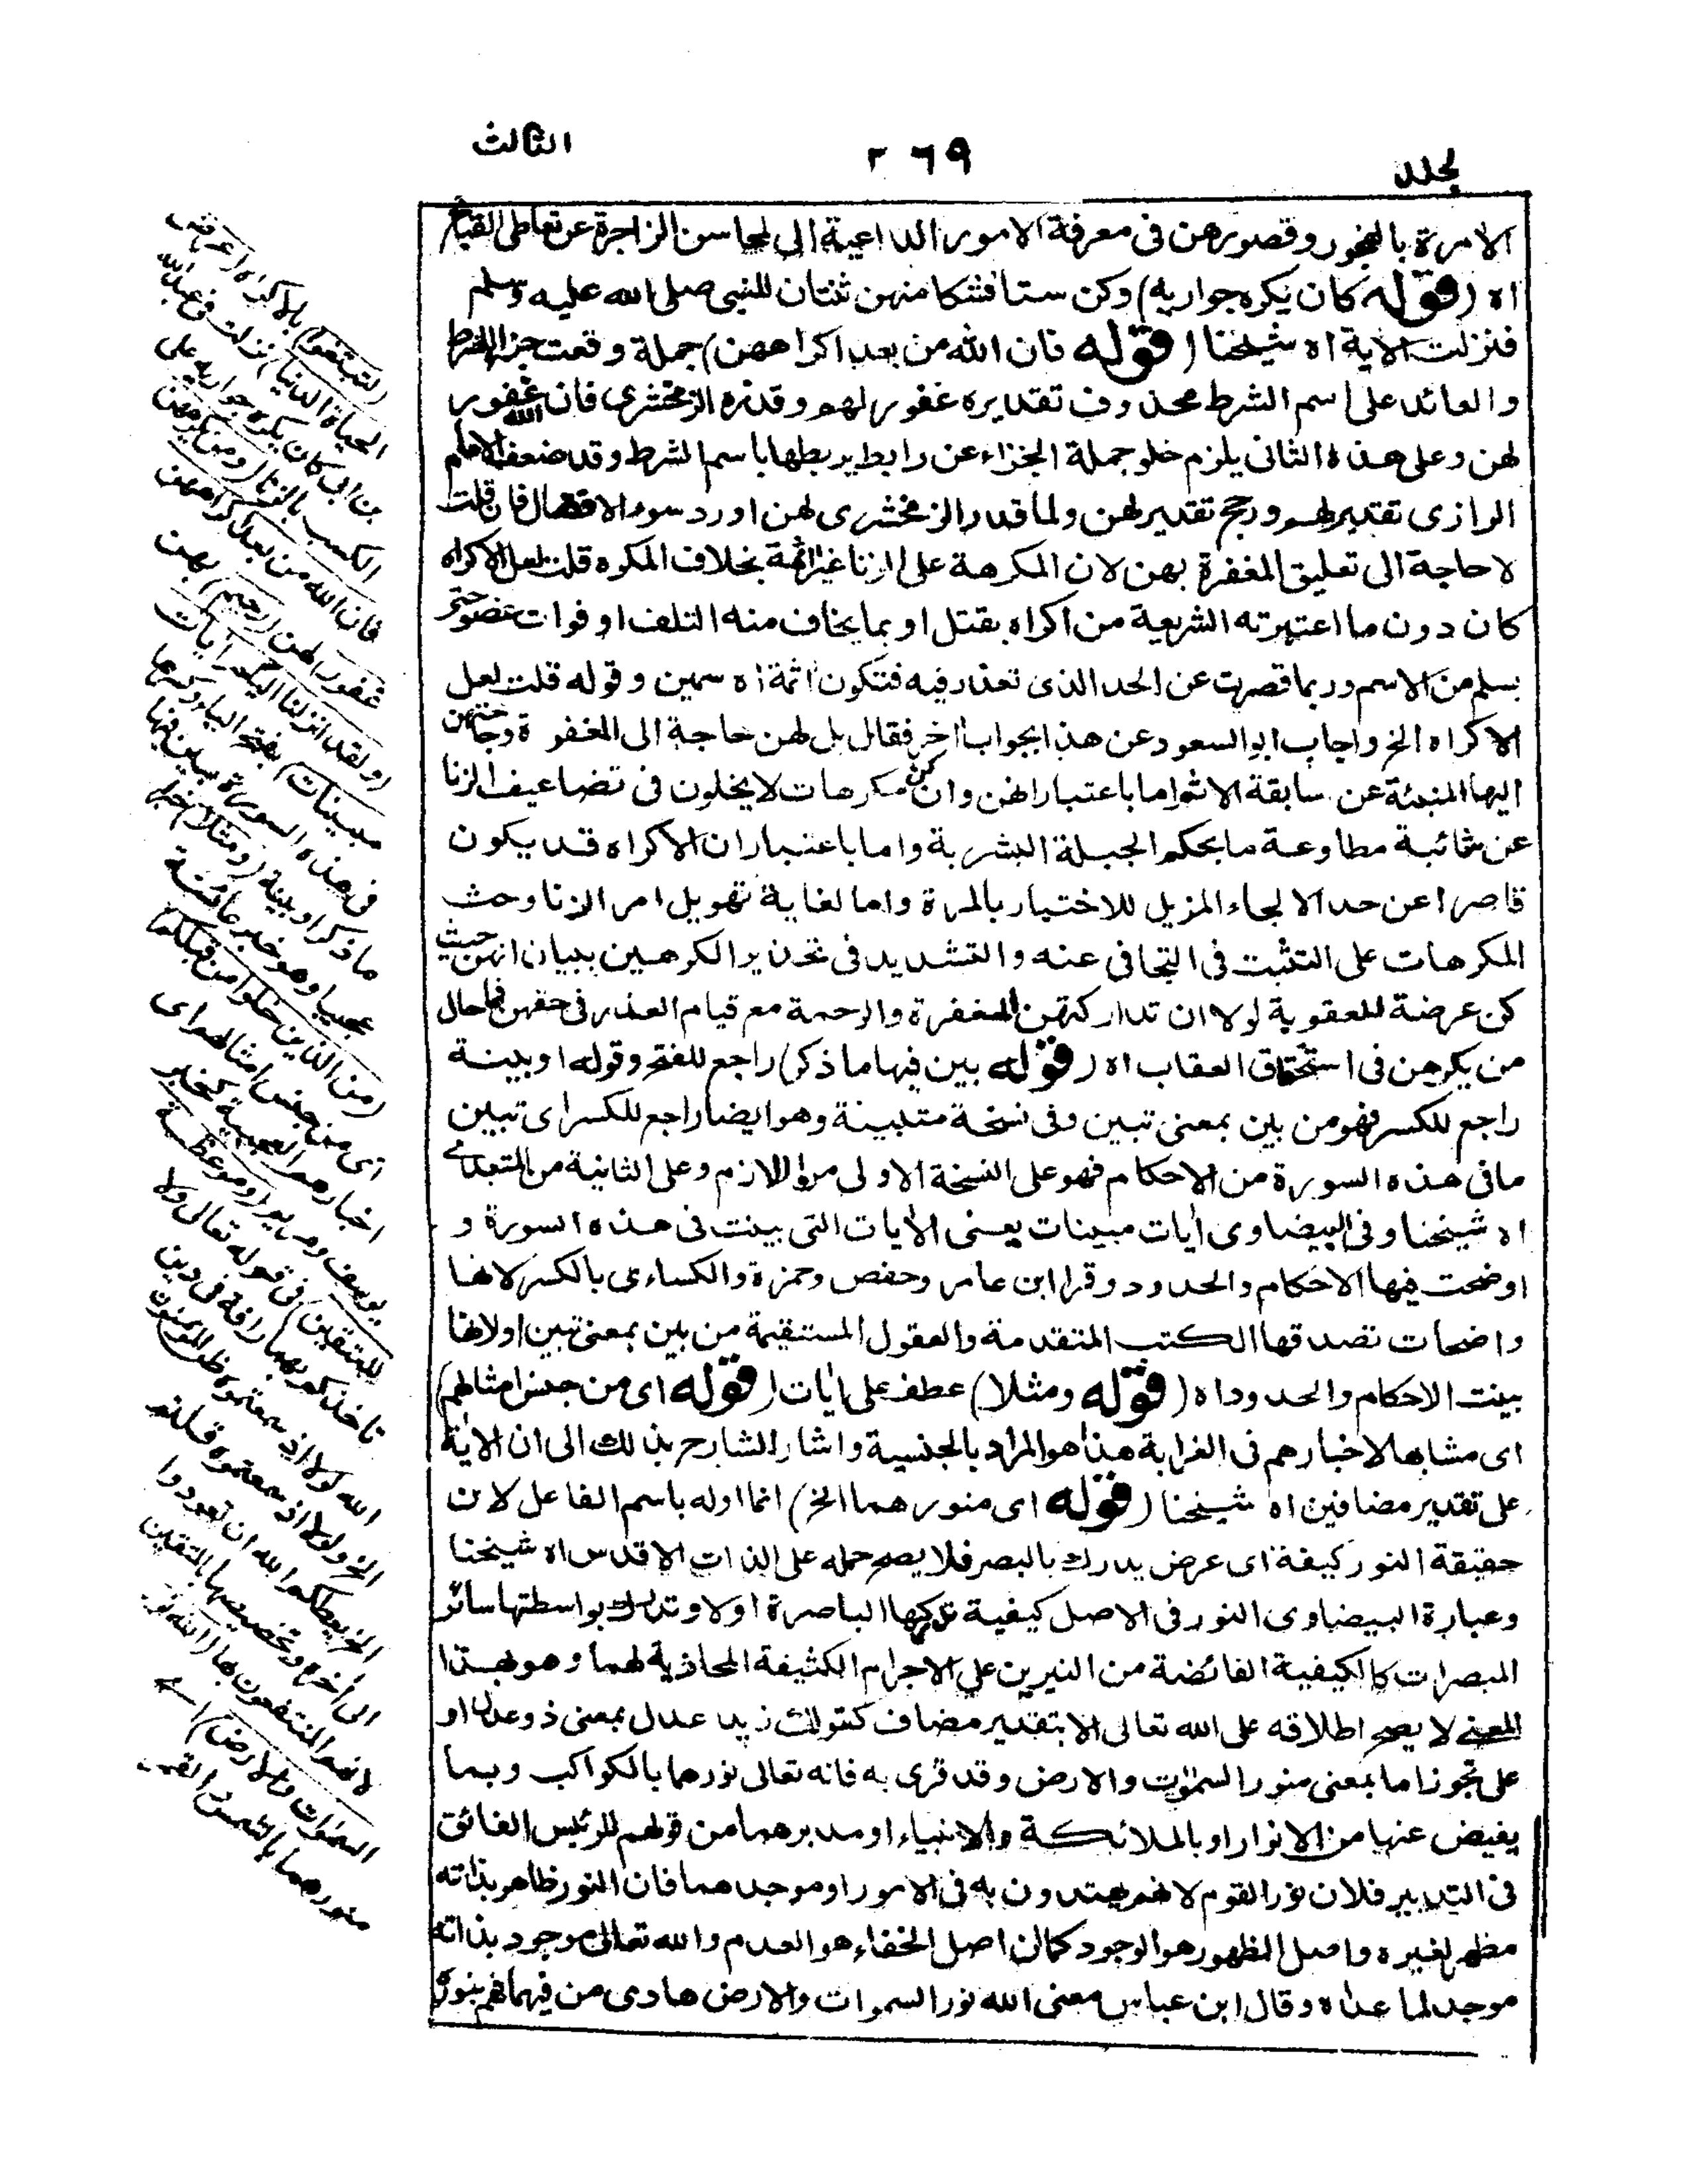 الثالث
٢٦٩
لجلد
الامرة بالفجور وقصورهن فى معرفة الامور الداعية الى المحاسن الزاجرة عن تعاطى القبائح
اه (قوله كان يكره جواريه) وكن ستا فشكا منهن ثنتان للنبى صلى الله عليه وسلم
فنزلت الاية اه شيخنا (قوله فان الله من بعد اكراههن) جملة وقعت جزاء للشرط
والعائد على اسم الشرط محذوف تقديره غفور لهم وقدره الزمخشرى فان الله غفور
لهن وعلى هذه الثانى يلزم خلو جملة الجزاء عن رابط يربطها باسم الشرط وقد ضعف الامام
الرازى تقدير لهم ورجح تقدير لهن ولما قدر الزمخشرى لهن اورد سوء الا فقال فان قلت
لا حاجة الى تعليق المغفرة بهن لان المكرهة على الزنا غير اثمة بخلاف المكره قلت لعل الاكراه
كان دون ما اعتبرته الشريعة من اكراه بقتل او بما يخاف منه التلف او فوات عضو حتى
يسلم من الاسم وربما قصرت عن الحد الذى تعذر فيه فتكون اثمة اه سمين وقوله قلت لعل
الاكراه الخ واجاب ابو السعود عن هذا بجواب اخر فقال بل لهن حاجة الى المغفرة وحاجتهن
اليها المنبئة عن سابقة الاثم اما باعتبار انهن وان كن مكرهات لا يخلون فى تضاعيف الزنا
عن شائبة مطاوعة ما بحكم الجبلة البشرية واما باعتبار ان الاكراه قد يكون
قاصرا عن حد الالجاء المزيل للاختيار بالمرة واما لغاية تهويل امر الزنا وحث
المكرهات على التثبت فى التجافى عنه والتشديد فى تحذير المكرهين ببيان انهن حيث
كن عرضة للعقوبة لولا ان تداركتهن المغفرة والرحمة مع قيام العذر فى حقهن فما حال
من يكرههن فى استحقاق العقاب اه (قوله بين فيها ما ذكر) راجع للفتح وقوله او بينة
راجع للكسر فهو من بين بمعنى تبين وفى نسخة متبينة وهو ايضا راجع للكسر اى تبين
ما فى هذه السورة من الاحكام فهو على النسخة الاولى من اللازم وعلى الثانية من المتعدى
اه شيخنا وفى البيضاوى أيات مبينات يعنى الأيات التى بينت فى هذه السورة و
اوضحت فيها الاحكام والحدود وقرا ابن عامر وحفص وحمزة والكساءى بالكسر لانها
واضحات تصدقها الكتب المتقدمة والعقول المستقيمة من بين بمعنى تبين اولانها
بينت الاحكام والحدود اه (قوله ومثلا) عطف على ايات (قوله اى من جنس امثالهم)
اى مشابها لاخبارهم فى الغرابة هذا هو المراد بالجنسية واشار الشارح بذلك الى ان الاية
على تقدير مضافين اه شيخنا (قوله اى منورهما الخ) انما اوله باسم الفاعل لان
حقيقة النور كيفة اى عرض يدرك بالبصر فلا يصح حمله على الذات الاقدس اه شيخنا
وعبارة البيضاوى النور فى الاصل كيفية تدركها الباصرة اولا وتدرك بواسطتها سائر
المبصرات كالكيفية الفائضة من النيرين على الاجرام الكثيفة المحاذية لهما وهو بهذا
المعنى لا يصح اطلاقه على الله تعالى الا بتقدير مضاف كقولك زيد عدل بمعنى ذو عدل او
على تجوز اما بمعنى منور السموات والارض وقد قرى به فانه تعالى نورهما بالكواكب وبما
يفيض عنها من الانوار او بالملائكة والانبياء او مدبرهما من قولهم للرئيس الفائق
فى التدبير فلان نور القوم لانهم يهتدون به فى الامور او موجدهما فان النور ظاهر بذاته
مظهر لغيره واصل الظهور هو الوجود كما ان اصل الخفاء هو العدم والله تعالى موجود بذاته
موجد لما عداه وقال ابن عباس معنى الله نور السموات والارض هادى من فيهما فهم بنوره
(لتبتغوا) بالاكراه (عرض
الحياة الدنيا) نزلت فى عبد الله
بن ابى كان يكره جواريه على
الكسب بالزنا (ومن يكرههن
فان الله من بعد اكراههن
غفور) لهن (رحيم) بهن
(ولقد انزلنا اليكم ايات
مبينات) بفتح الياء وكسرها
فى هذه السورة بين فيها
ما ذكر او بينة (ومثلا) خبرا
عجيبا وهو خبر عائشة
(من الذين خلوا من قبلكم)
اى من جنس امثالهم اى
اخبارهم العجيبة كخبر
يوسف ومريم (وموعظة
للمتقين) فى قوله تعالى ولا
تاخذكم بهما رافة فى دين
الله لولا اذ سمعتموه ظن المؤمنون
الخ ولولا اذ سمعتموه قلتم
الخ يعظكم الله ان تعودوا
الى اخره وتخصيصها بالمتقين
لانهم المنتفعون بها (الله نور
السموات والارض) اى
منورهما بالشمس والقمر